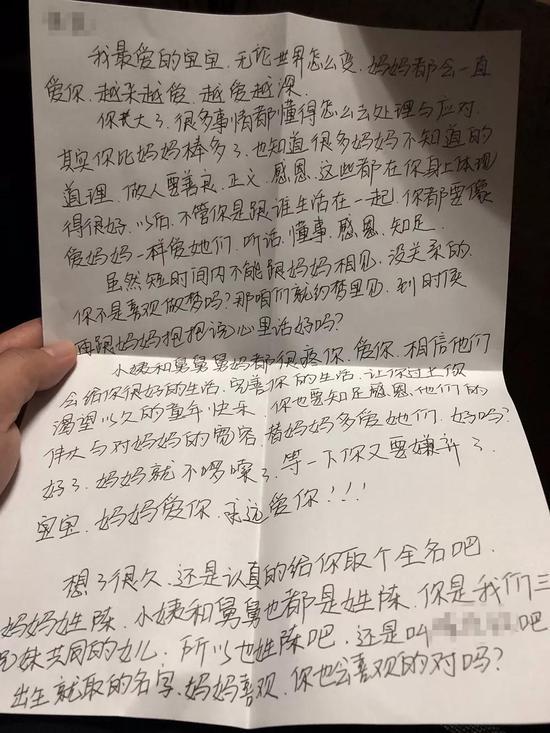 我最爱的宝宝、无论世界怎么变、妈妈都会一直
爱你、越来越爱、越爱越深、
你长大了、很多事情都懂得怎么去处理与应对、
其实你比妈妈棒多了、也知道很多妈妈不知道的
道理、做人要善良、正义、感恩、这些都在你身上体现
得很好、以后、不管你是跟谁生活在一起、你都要像
爱妈妈一样爱她们、听话、懂事、感恩、知足、
虽然短时间内不能跟妈妈相见、没关系的、
你不是喜欢做梦吗？那咱们就约梦里见、到时候
再跟妈妈抱抱说心里话好吗？
小姨和舅舅舅妈都很疼你、爱你、相信他们
会给你很好的生活、完善你的生活、让你过上你
渴望以久的童年快乐、你也要知足感恩、他们的
伟大与对妈妈的宽容、替妈妈多爱她们、好吗？
好了、妈妈就不啰嗦了、等一下你又要嫌弃了、
宝宝、妈妈爱你、永远爱你！！！
想了很久、还是认真的给你取个全名吧、
妈妈姓陈、小姨和舅舅也都是姓陈、你是我们三
兄妹共同的女儿、所以也姓陈吧、还是叫吧、
出生就取的名字、妈妈喜欢、你也会喜欢的对吗？